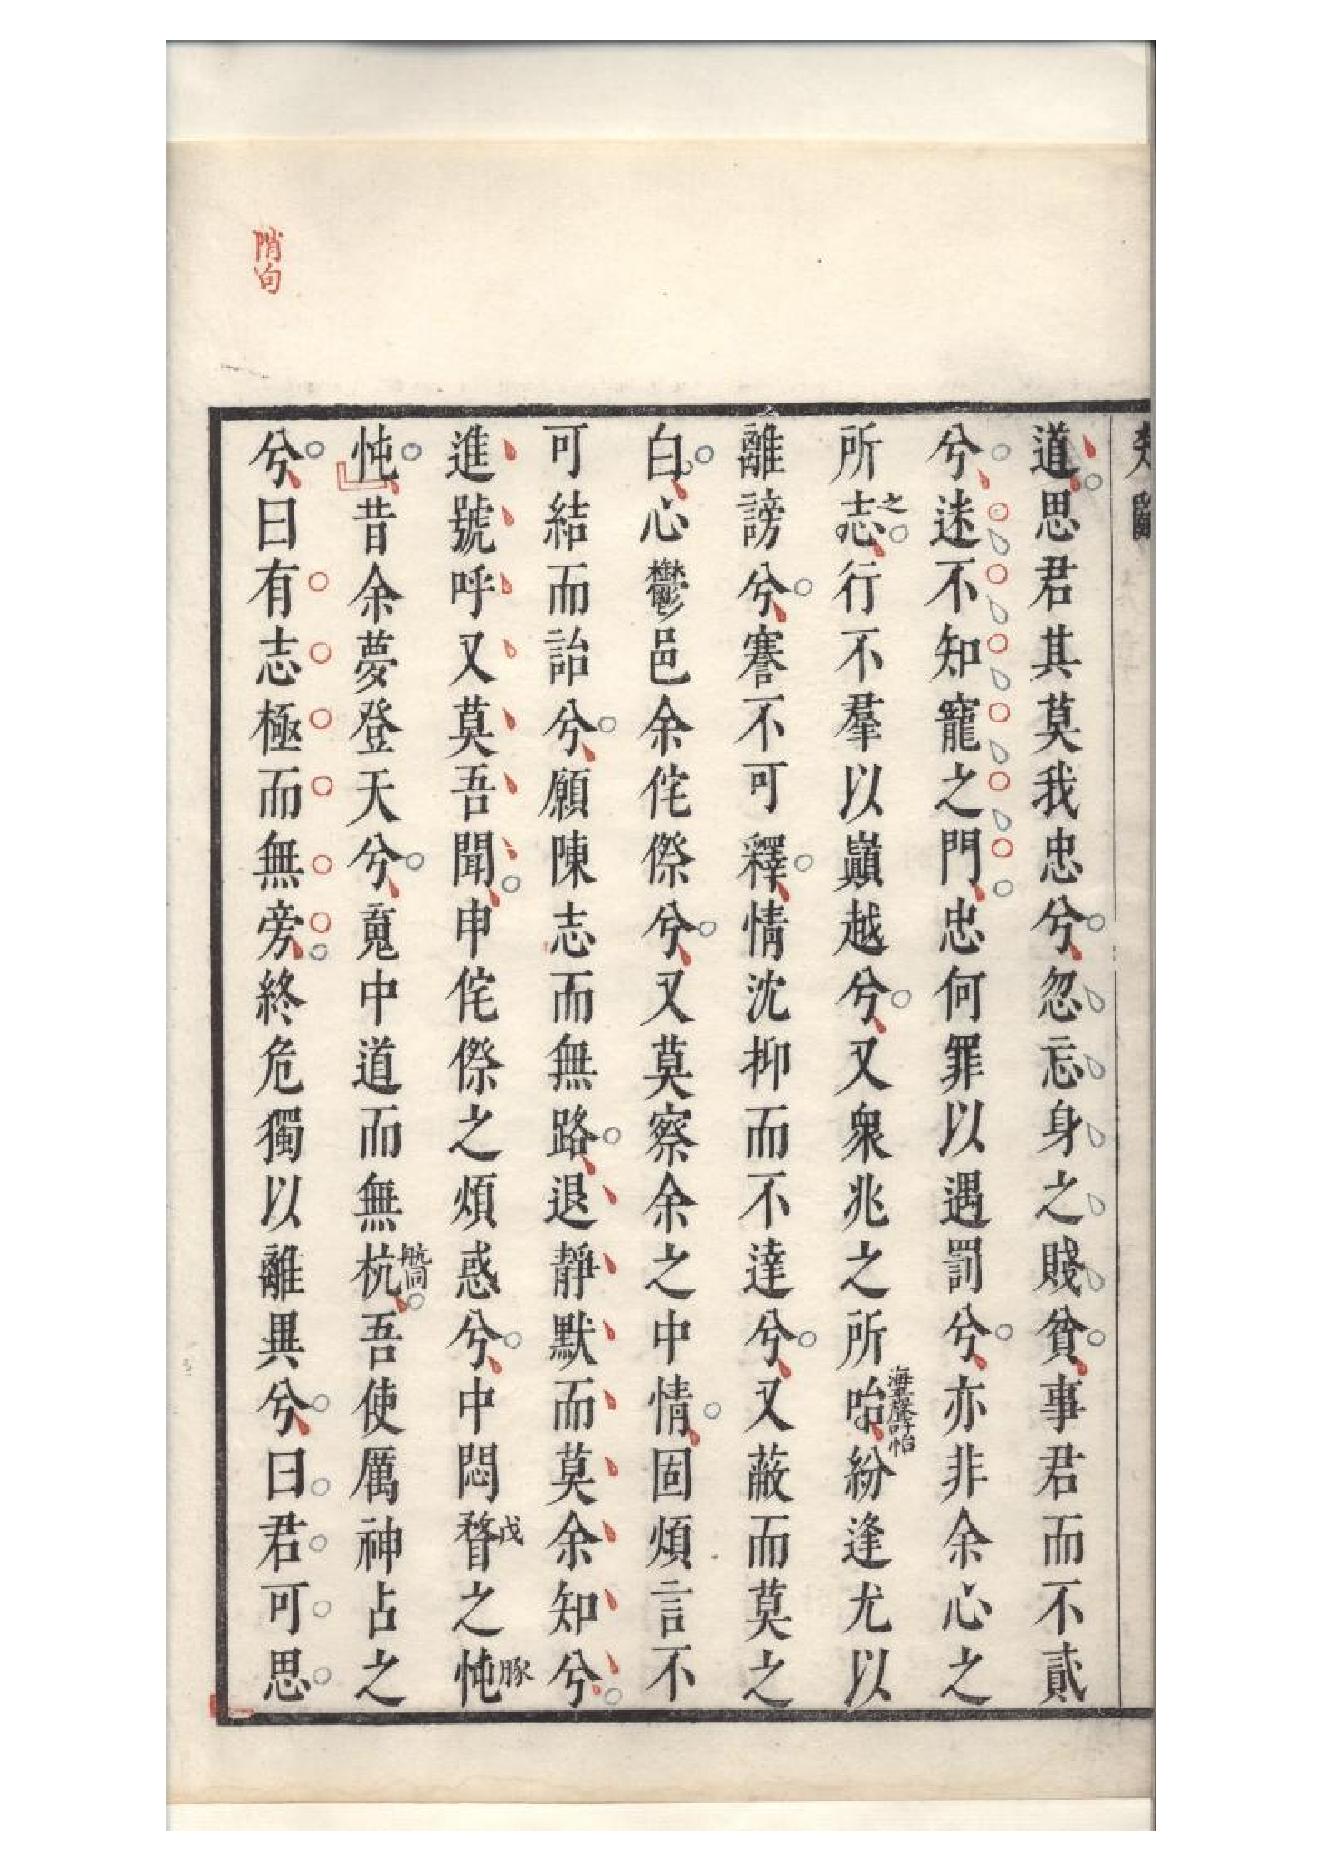 道思君其莫我忠兮忽忘身之賤貧事君而不貳
兮迷不知寵之門忠何罪以遇罰兮亦非余心之
所志之行不羣以巔越兮又衆兆之所咍紛逢尤以
離謗兮謇不可釋情沈抑而不達兮又蔽而莫之
白心鬱邑余侘傺兮又莫察余之中情固煩言不
可結而詒兮願陳志而無路退靜默而莫余知兮
進號呼又莫吾聞申侘傺之煩惑兮中悶瞀戊之忳豚
忳昔余夢登天兮䰟中道而無杭吾使厲神占之
兮曰有志極而無旁終危獨以離異兮曰君可思